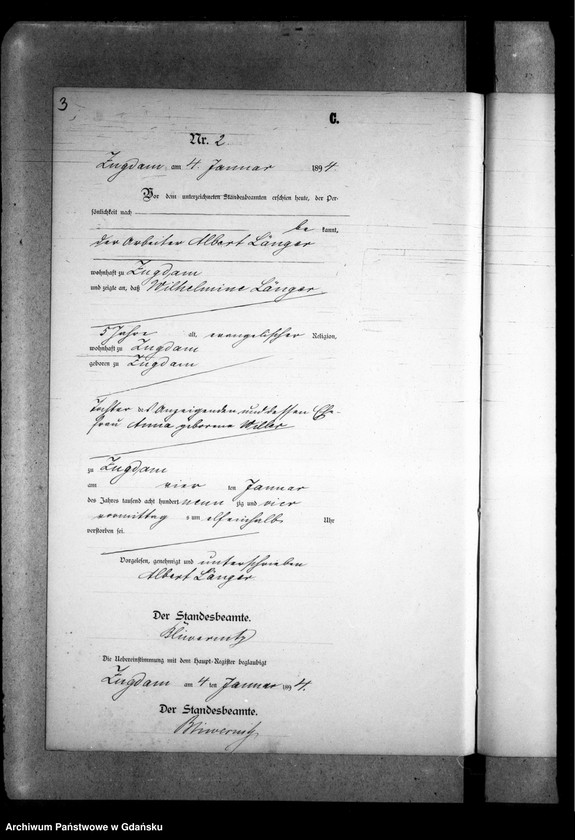 3
C.
Nr. 2
Zugdam am 4. Januar 1894.
Vor dem unterzeichneten Standesbeamten erschien heute, der Per-
sönlichkeit nach
be kannt,
der Arbeiter Albert Länger
wohnhaft zu Zugdam
und zeigte an, daß Wilhelmine Länger
5 Jahre alt, evangelischer Religion,
wohnhaft zu Zugdam
geboren zu Zugdam
Tochter des Anzeigenden und dessen Ehe-
frau Anna geborene
zu Zugdam
am vier ten Januar
des Jahres tausend acht hundert neun zig und vier
vormittag s um elfeinhalb Uhr
verstorben sei.
Vorgelesen, genehmigt und unterschrieben
Albert Länger
Der Standesbeamte.
Die Uebereinstimmung mit dem Haupt-Register beglaubigt
Zugdam am 4 ten Januar 1894.
Der Standesbeamte.
Archiwum Państwowe w Gdańsku